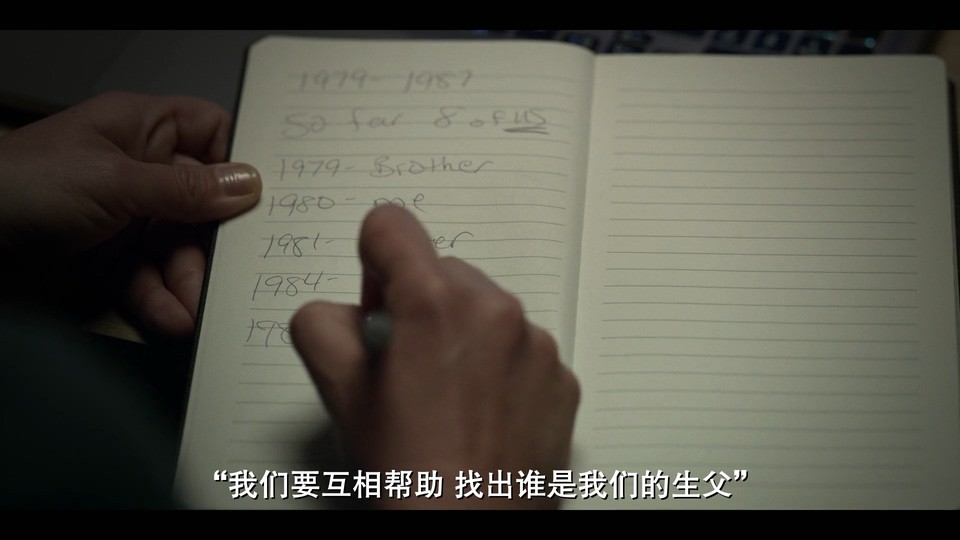 1979- 1987
So far 8 of us
1979- Brother
1980- me
1981-
1984-
“我们要互相帮助 找出谁是我们的生父”